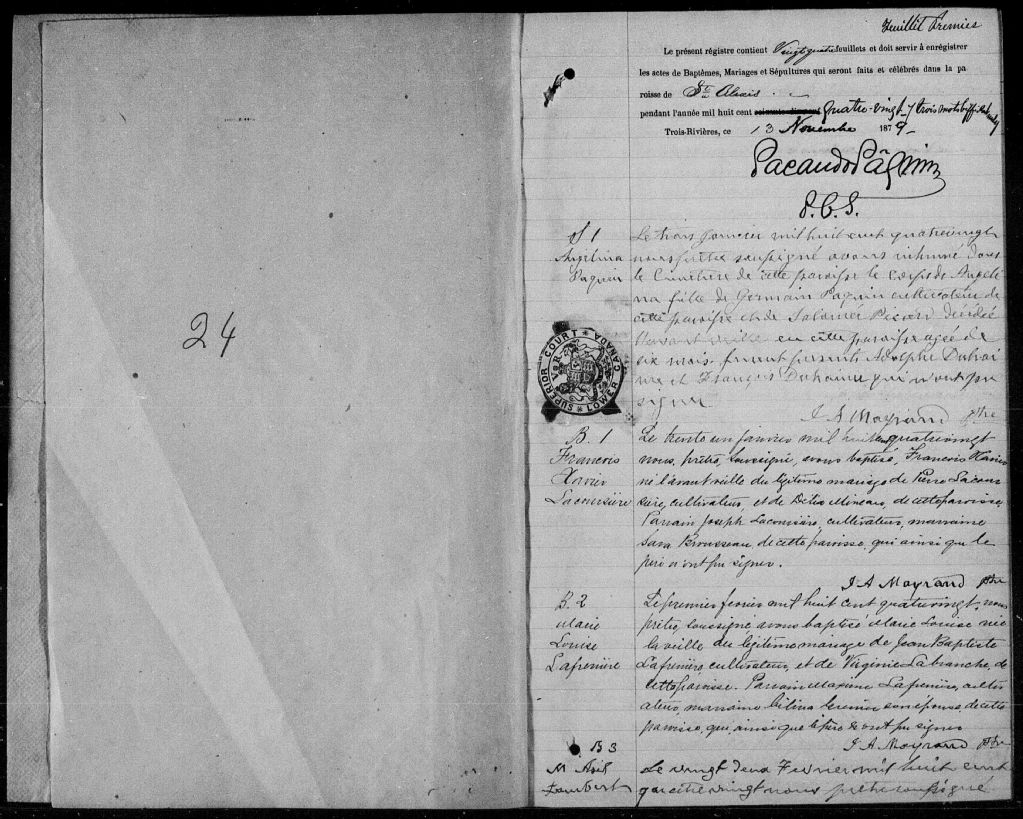 24
Feuillet Premier
Le présent régistre contient Vingt quatre feuillets et doit servir à enrégistrer
les actes de Baptêmes, Mariages et Sépultures qui seront faits et célébrés dans la pa
roisse de St Alexis
pendant l'année mil huit cent quatre-vingt / trois mots biffés
Trois-Rivières, ce 13 Novembre 1879
Pacaud & Pâquin
P. C. S.
S 1
Angelina
Paquin
Le trois janvier mil huit cent quatrevingt
nous prêtre soussigné avons inhumé dans
le Cimetière de cette paroisse le corps de Angeli
na fille de Germain Paquin cultivateur de
cette paroisse et de Salomée Picard décédée
l'avant veille en cette paroisse agée de
six mois furent présents Adolphe Duhai
me et François Duhaime qui n'ont pu
signer
J A Mayrand Ptre
SUPERIOR COURT
LOWER CANADA
V R
B. 1
Francois
Xavier
Lacoursière
Le trente un janvier mil huit cent quatrevingt
nous, prêtre, soussigné, avons baptisé, Francois Xavier
né l'avant veille du légitime mariage de Pierre Lacour
sière, cultivateur, et de Délia Milneau, de cette paroisse,
Parrain Joseph Lacoursière, cultivateur, marraine
Sara Brousseau, de cette paroisse, qui ainsi que le
père n'ont pu signer.
J A Mayrand Ptre
B. 2
Marie
Louise
Lafrenière
Le premier fevrier mil huit cent quatrevingt, nous
prêtre, soussigné avons baptisé Marie Louise née
la veille du légitime mariage de Jean Baptiste
Lafrenière cultivateur, et de Virginie Labranche, de
cette paroisse. Parrain Maxime Lafrenière, culti
vateur, marraine Célina son épouse, de cette
paroisse, qui, ainsi que le père n'ont pu signer
J A Mayrand Ptre
B 3
M
Lambert
Le vingt deux Fevrier mil huit cent
quatre vingt nous prêtre soussigné